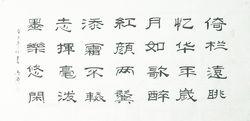 倚栏遠眺
忆华年歲
月如歌醉
紅顏两鬢
添霜不輟
志揮毫泼
墨樂悠閑